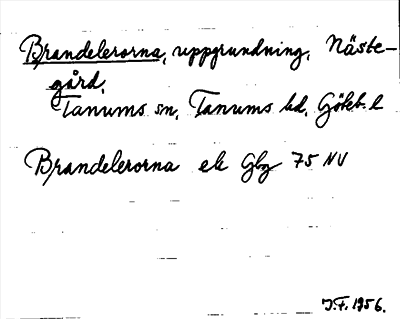 Brandelerorna, uppgrundning, Näste-
gård,
Tanums sn, Tanums hd, Göteb. l
Brandelerorna ek Gbg 75 NV
J.F. 1956.